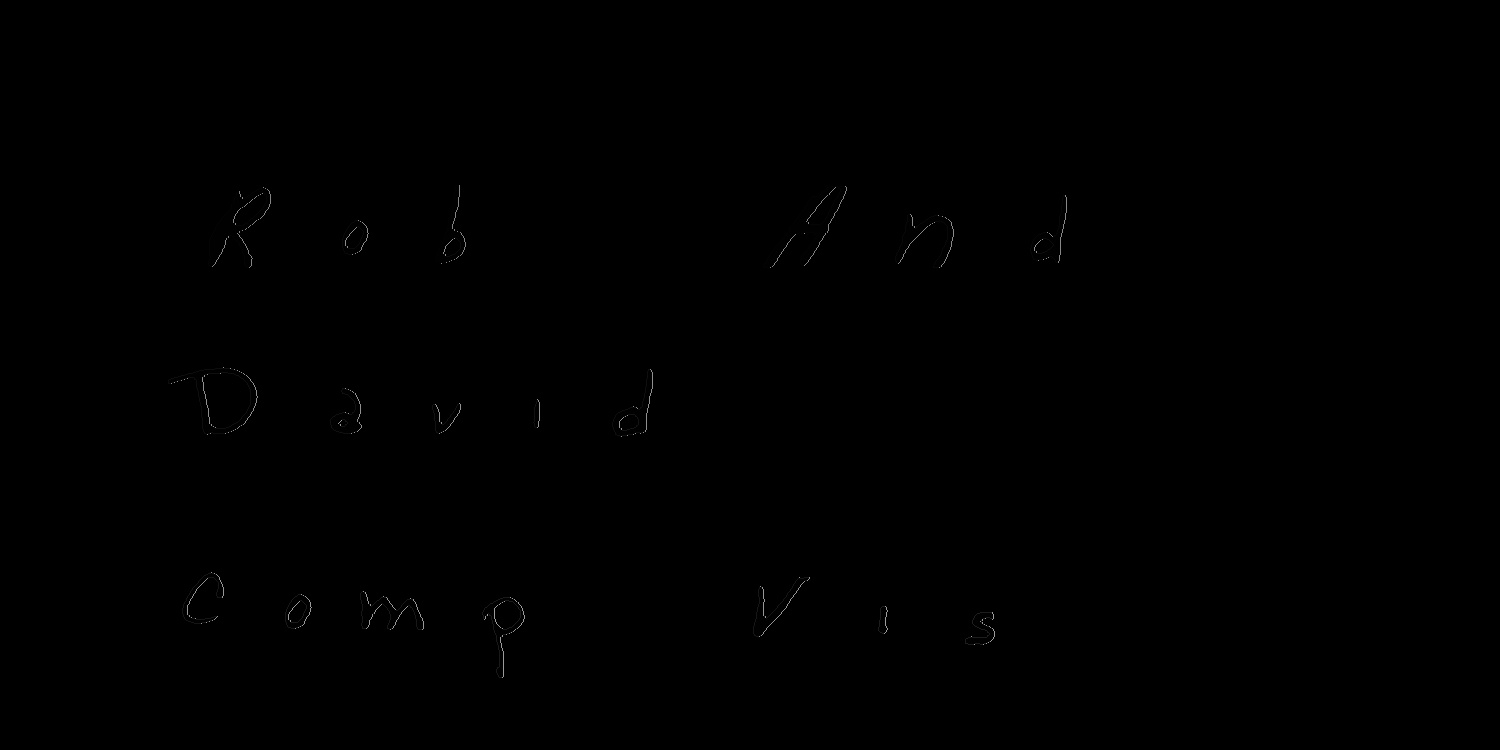 Rob And
David
Comp Vis